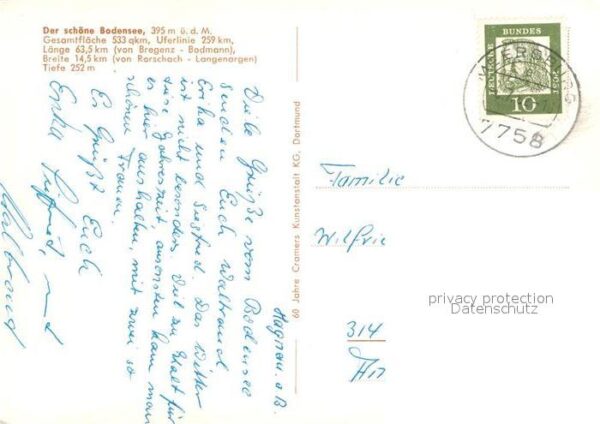 Der schöne Bodensee, 395 m ü. d. M.
Gesamtfläche 533 qkm, Uferlinie 259 km,
Länge 63,5 km (von Bregenz - Bodmann),
Breite 14,5 km (von Rorschach - Langenargen)
Tiefe 252 m
Hagnau. a. B.
Viele Grüße vom Bodensee
senden Euch Waltraud
Erika und Siegfried. Das Wetter
ist nicht besonders. Viel zu kalt für
diese Jahreszeit ansonsten kann man
es hier aushalten, mit zwei so
schönen Frauen.
Es Grüßt Euch
Erika Siegfried, und
Waltraud
60 Jahre Cramers Kunstanstalt KG, Dortmund
DEUTSCHE BUNDESPOST
10
MEERSBURG
7758
Familie
Wilfrie
314
privacy protection
Datenschutz